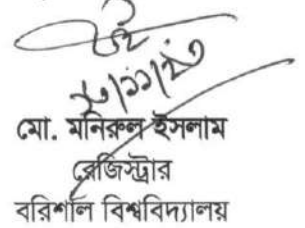 মো. মনিরুল ইসলাম
রেজিস্ট্রার
বরিশাল বিশ্ববিদ্যালয়